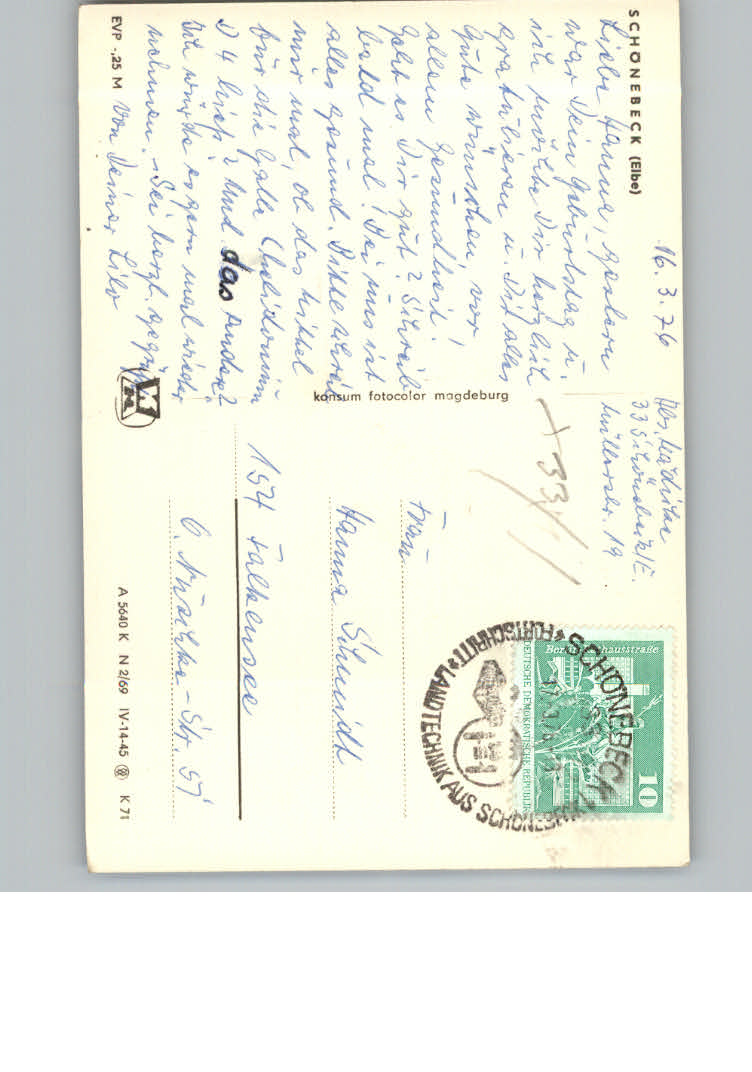 SCHÖNEBECK (Elbe)
16.3.76
Liebe Hanna, gestern
war Dein Geburtstag u.
ich möchte Dir herzlich
gratulieren u. Dir alles
Gute wünschen, vor
allem Gesundheit!
Geht es Dir gut? Schreib
bald mal! Bei uns ist
alles gesund. Bitte schreib
mir mal, ob das Mittel
für die Galle Cholidomin
D 4 hieß? Und das andere?
Ich würde es gern mal wieder
nehmen. - Sei herzl. gegrüßt
von Deiner Lilo
EVP -,25 M
konsum fotocolor magdeburg
Abs.
33 Schönebeck/E.
Müllerstr. 19
+33/
Frau
Hanna Schmidt
154 Falkensee
Str. 51
A 5640 K N 2/69 IV-14-45 K 71
Berlin, Rathausstraße
10
DEUTSCHE DEMOKRATISCHE REPUBLIK
SCHÖNEBECK
FORTSCHRITT * LANDTECHNIK AUS SCHÖNEBECK